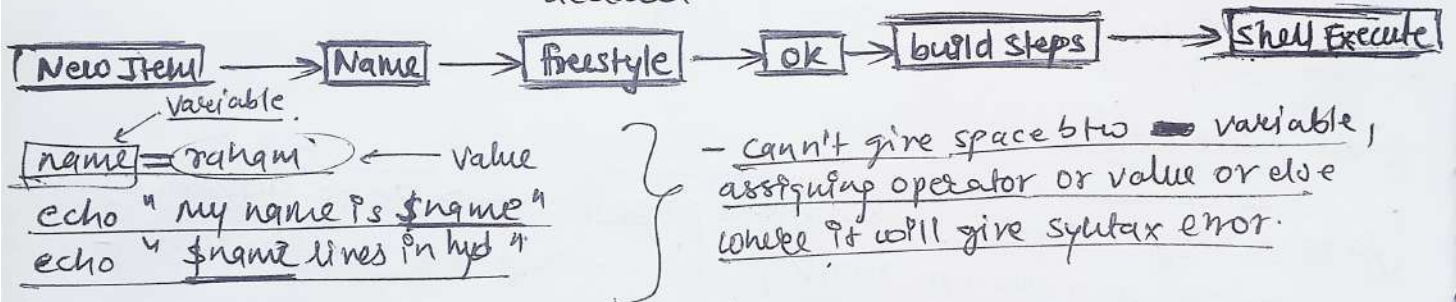 New Item → Name → freestyle → OK → build steps → Shell Execute
variable.
name = raham ← value
echo " My name is $name "
echo " $name lives in hyd ".
- cann't give space btw variable,
assigning operator or value or else
it will give syntax error.